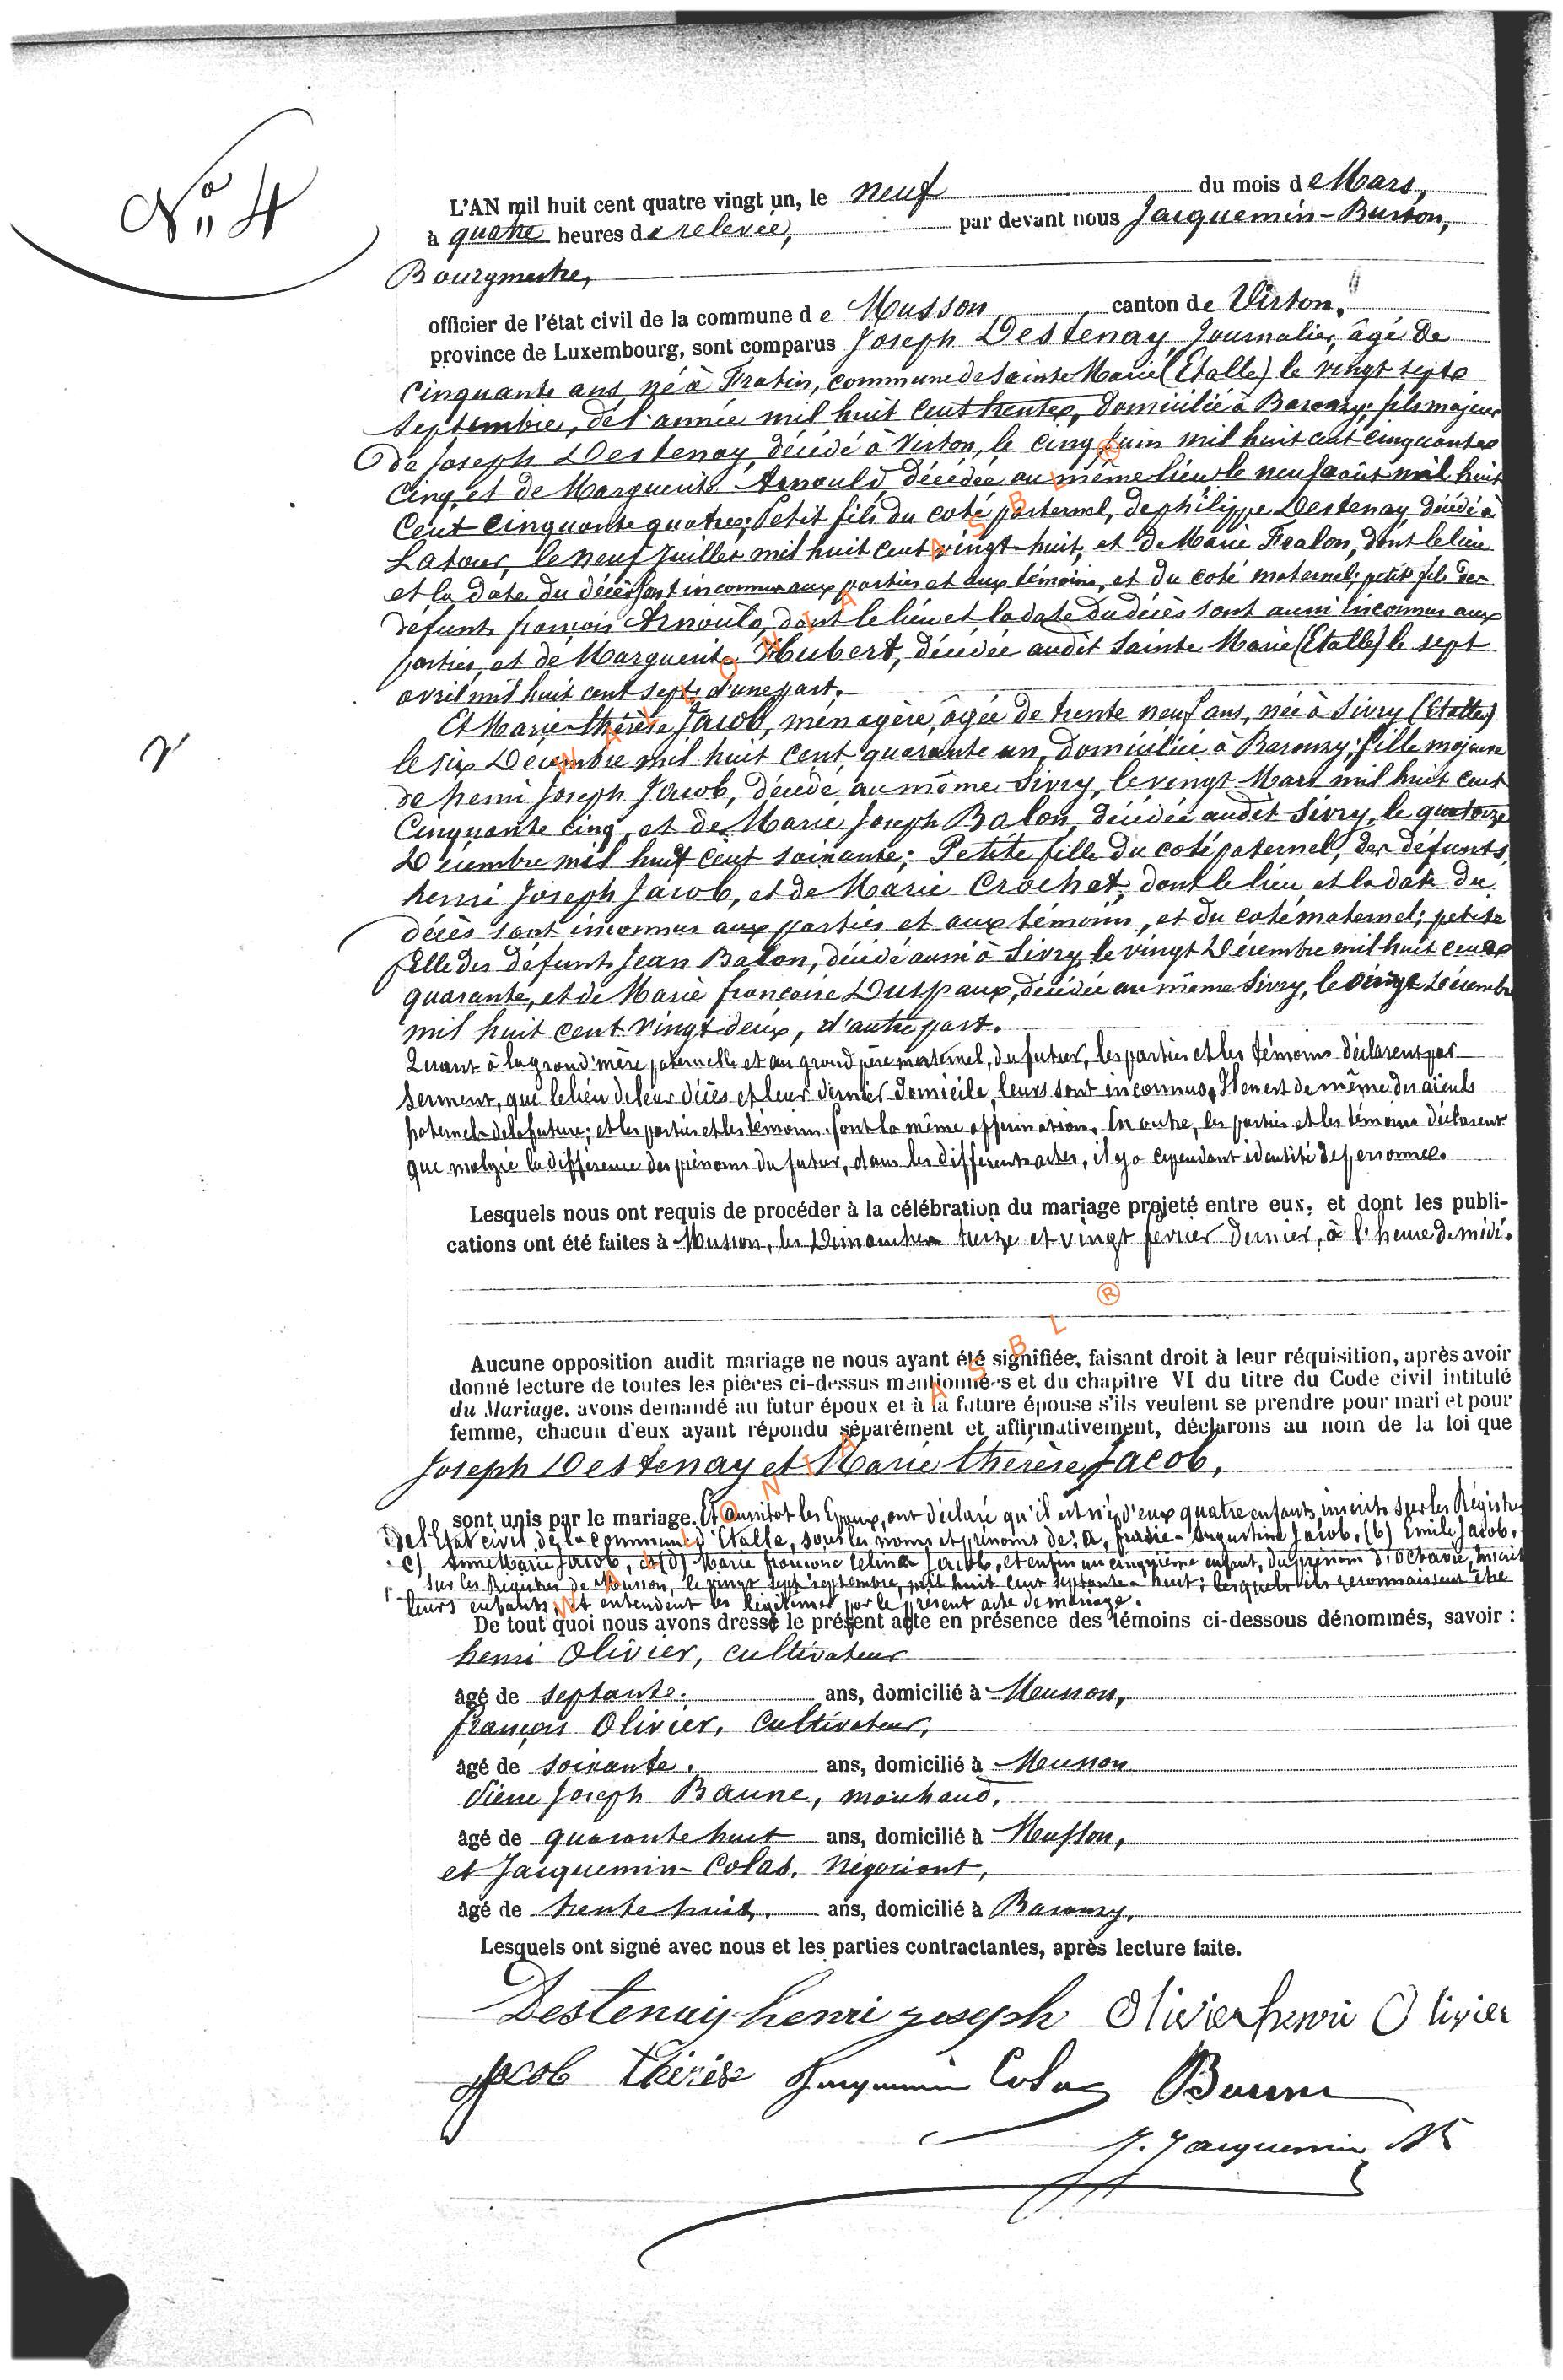 No 4
L'AN mil huit cent quatre vingt un, le neuf du mois de Mars,
à quatre heures de relevée, par devant nous Jacquemin-Burton,
Bourgmestre,
officier de l'état civil de la commune de Musson canton de Virton,
province de Luxembourg, sont comparus Joseph Destenay, Journalier, âgé de
cinquante ans, né à Fratin, commune de Sainte Marie (Etalle) le vingt sept
Septembre, de l'année mil huit cent trente, domicilié à Baranzy; fils majeur
de Joseph Destenay, décédé à Virton, le cinq Juin mil huit cent cinquante
cinq, et de Marguerite Arnould décédée au même lieu le neuf août mil huit
cent cinquante quatre; Petit fils du coté paternel, de philippe Destenay, décédé à
Latour, le neuf Juillet mil huit cent vingt-huit, et de Marie Fralon, dont le lieu
et la date du décès sont inconnus aux parties et aux témoins, et du coté maternel; petit fils des
défunts françois Arnould, dont le lieu et la date du décès sont aussi inconnus aux
parties, et de Marguerite Hubert, décédée audit Sainte Marie (Etalle) le sept
avril mil huit cent sept, d'une part.
Et Marie-thérèse Jacob, ménagère, âgée de trente neuf ans, née à Sivry (Etalle)
le six Décembre mil huit cent quarante un, domiciliée à Baranzy; fille majeure
de henri Joseph Jacob, décédé au même Sivry, le vingt Mars mil huit cent
Cinquante cinq, et de Marie Joseph Balon, décédée audit Sivry, le quatorze
Décembre mil huit cent soixante; Petite fille du coté paternel, des défunts,
henri Joseph Jacob, et de Marie Crochet, dont le lieu et la date du
décès sont inconnus aux parties et aux témoins, et du coté maternel; petite
fille des défunts Jean Balon, décédé aussi à Sivry, le vingt Décembre mil huit cent
quarante, et de Marie françoise Duspaux, décédée au même Sivry, le vingt Décembre
mil huit cent vingt deux, d'autre part.
Quant à la grand'mère paternelle et au grand père maternel, du futur, les parties et les témoins déclarent par
serment, que le lieu de leur décès et leur dernier domicile, leurs sont inconnus. Il en est de même des aïeuls
paternels de la future; et les parties et les témoins font la même affirmation. En outre, les parties et les témoins déclarent
que malgré la différence des prénoms du futur, dans les différents actes, il y a cependant identité de personnes.
Lesquels nous ont requis de procéder à la célébration du mariage projeté entre eux, et dont les publi-
cations ont été faites à Musson, les Dimanches treize et vingt février dernier, à l'heure de midi.
Aucune opposition audit mariage ne nous ayant été signifiée, faisant droit à leur réquisition, après avoir
donné lecture de toutes les pièces ci-dessus mentionnées et du chapitre VI du titre du Code civil intitulé
du Mariage, avons demandé au futur époux et à la future épouse s'ils veulent se prendre pour mari et pour
femme, chacun d'eux ayant répondu séparément et affirmativement, déclarons au nom de la loi que
Joseph Destenay et Marie thérèse Jacob,
sont unis par le mariage. Et aussitot les Epoux, ont déclaré qu'il est né d'eux quatre enfants, inscrits sur les Registres
de l'Etat civil de la commune d'Etalle, sous les noms et prénoms de: a, Augustine Jacob, (b) Emile Jacob,
c) Anne Marie Jacob, et (d) Marie françoise Celina Jacob, et enfin un cinquième enfant, du prénom d'Octavie, inscrit
sur les Registres de Musson, le vingt sept septembre, mil huit cent septante-huit; lesquels ils reconnaissent être
leurs enfants, et entendent les légitimer par le présent acte de mariage.
De tout quoi nous avons dressé le présent acte en présence des témoins ci-dessous dénommés, savoir :
henri Olivier, cultivateur
âgé de septante. ans, domicilié à Musson,
françois Olivier, Cultivateur,
âgé de soixante. ans, domicilié à Musson
Pierre Joseph Baune, marchand,
âgé de quarante huit ans, domicilié à Musson,
et Jacquemin-Colas, Négociant,
âgé de trente huit. ans, domicilié à Baranzy.
Lesquels ont signé avec nous et les parties contractantes, après lecture faite.
Destenay henri joseph Olivier henri Olivier
Jacob thérèse Jacquemin Colas Baune
J. Jacquemin
WALLONIA ASBL ®
WALLONIA ASBL ®